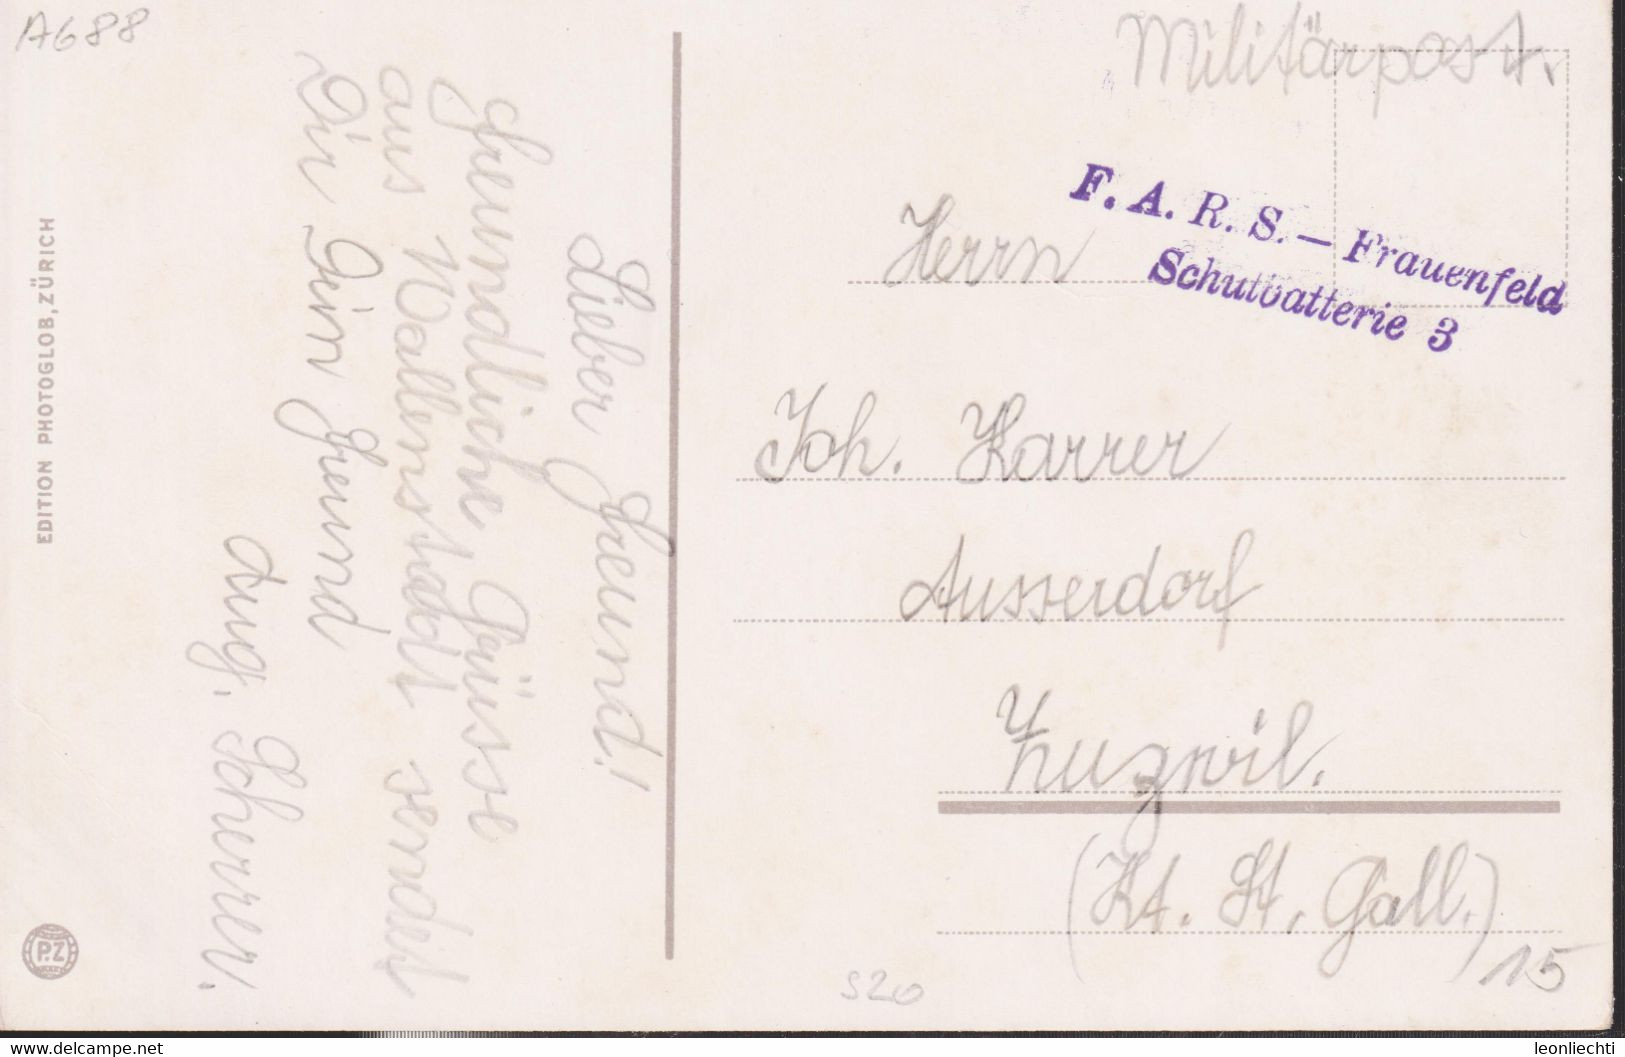 A688
Militärpost.
F. A. R. S. — Frauenfeld
Schulbatterie 3
Herrn
Joh. Karrer
Ausserdorf
Zuzwil.
(Kt. St. Gall.)
15
S20
Lieber Freund!
Freundliche Grüsse
aus Wallenstadt sendet
Dir Dein Freund
Aug. Scherrer.
EDITION PHOTOGLOB, ZÜRICH
P.Z
leonliechti
www.delcampe.net